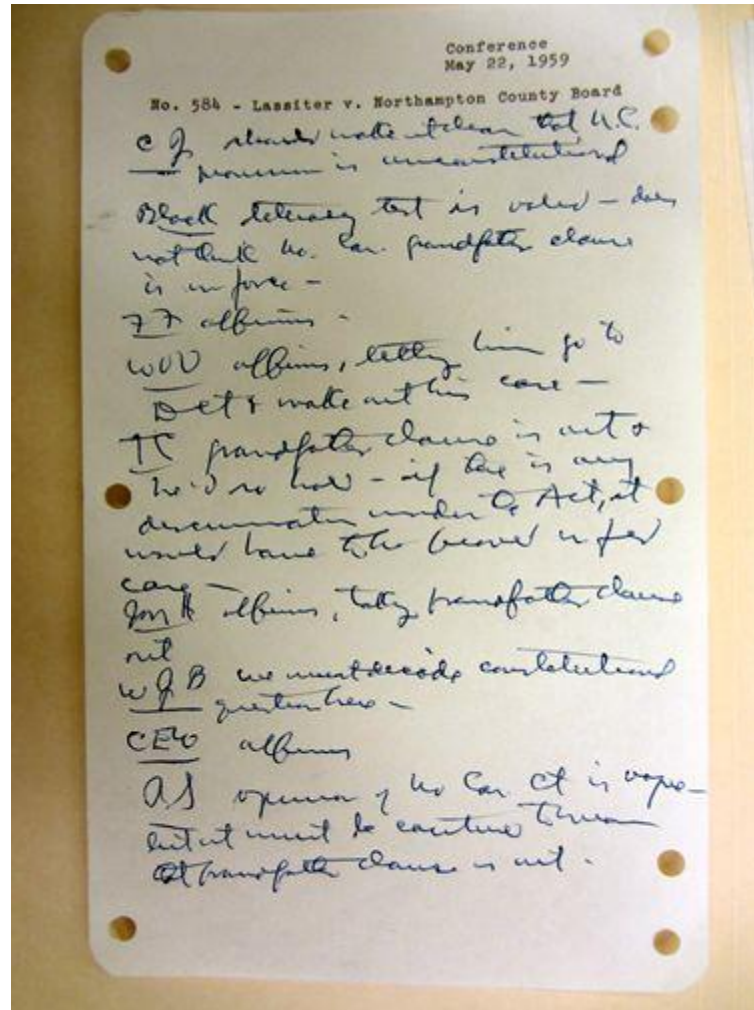 Conference
May 22, 1959
No. 584 - Lassiter v. Northampton County Board
C J should make it clear that N.C.
provision is unconstitutional
Black literacy test is valid - does
not think No. Car. grandfather clause
is in force -
FF affirms -
WOD affirms, letting him go to
D Ct & make out his case -
TC grandfather clause is out &
he'd so hold - if there is any
discrimination under the Act, it
would have to be proved in fed
case -
JMH affirms, taking grandfather clause
out
WJB we must decide constitutional
question here -
CEW affirms
PS opinion of No Car Ct is vague -
but it must be construed to mean
that grandfather clause is out -